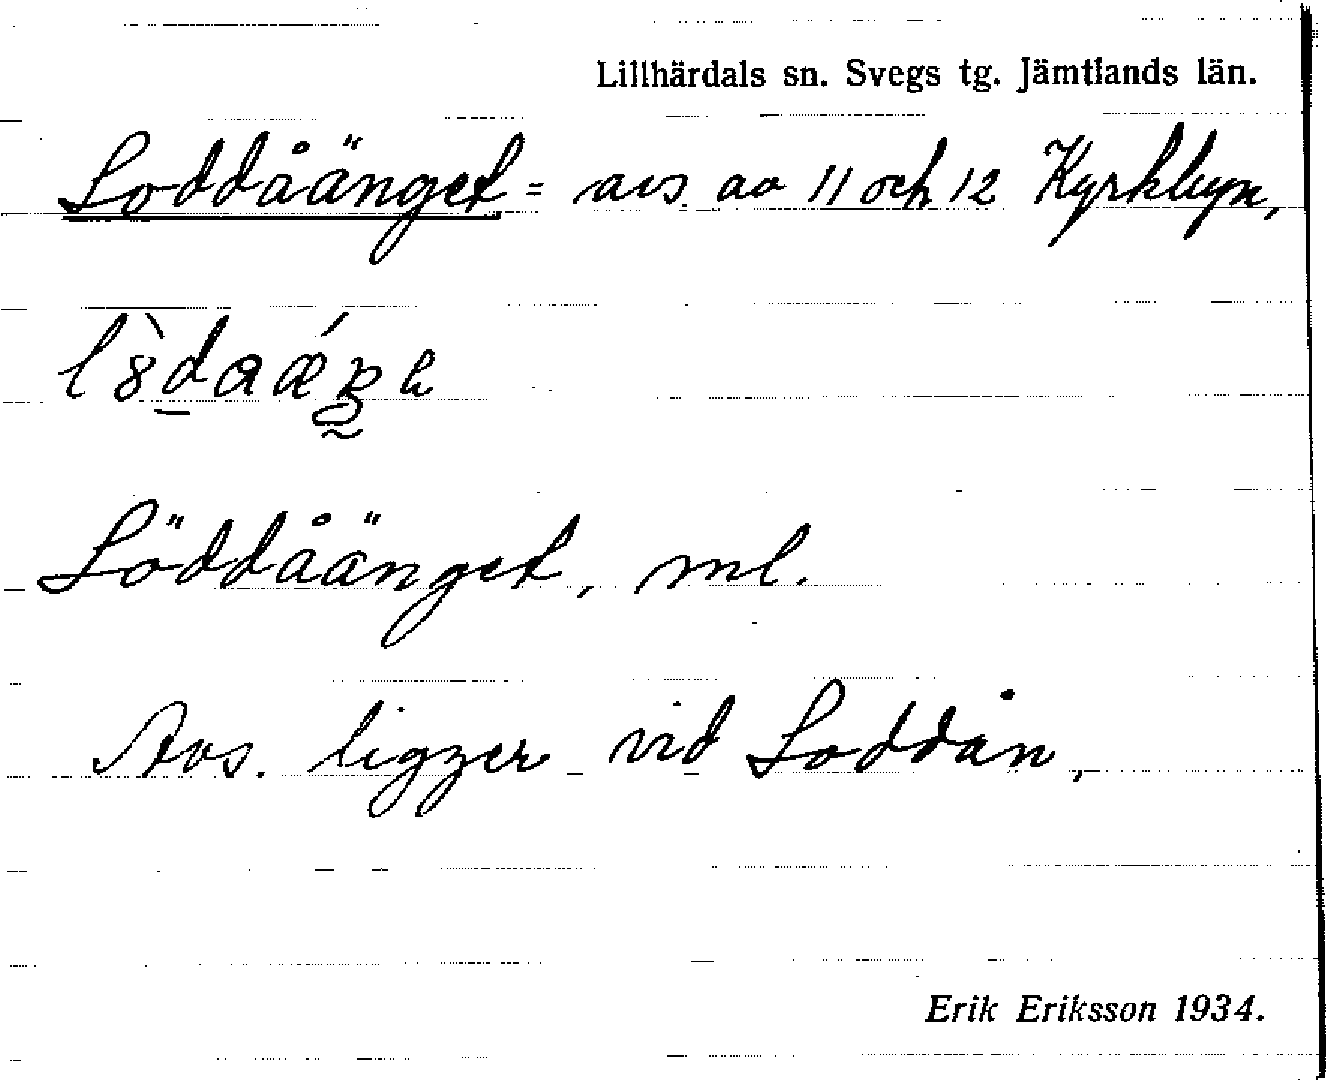 Lillhärdals sn. Svegs tg. Jämtlands län.
Loddåänget = avs. av 11 och 12 Kyrkbyn,
Löddåänget, ml.
Avs. ligger vid Loddån,
Erik Eriksson 1934.